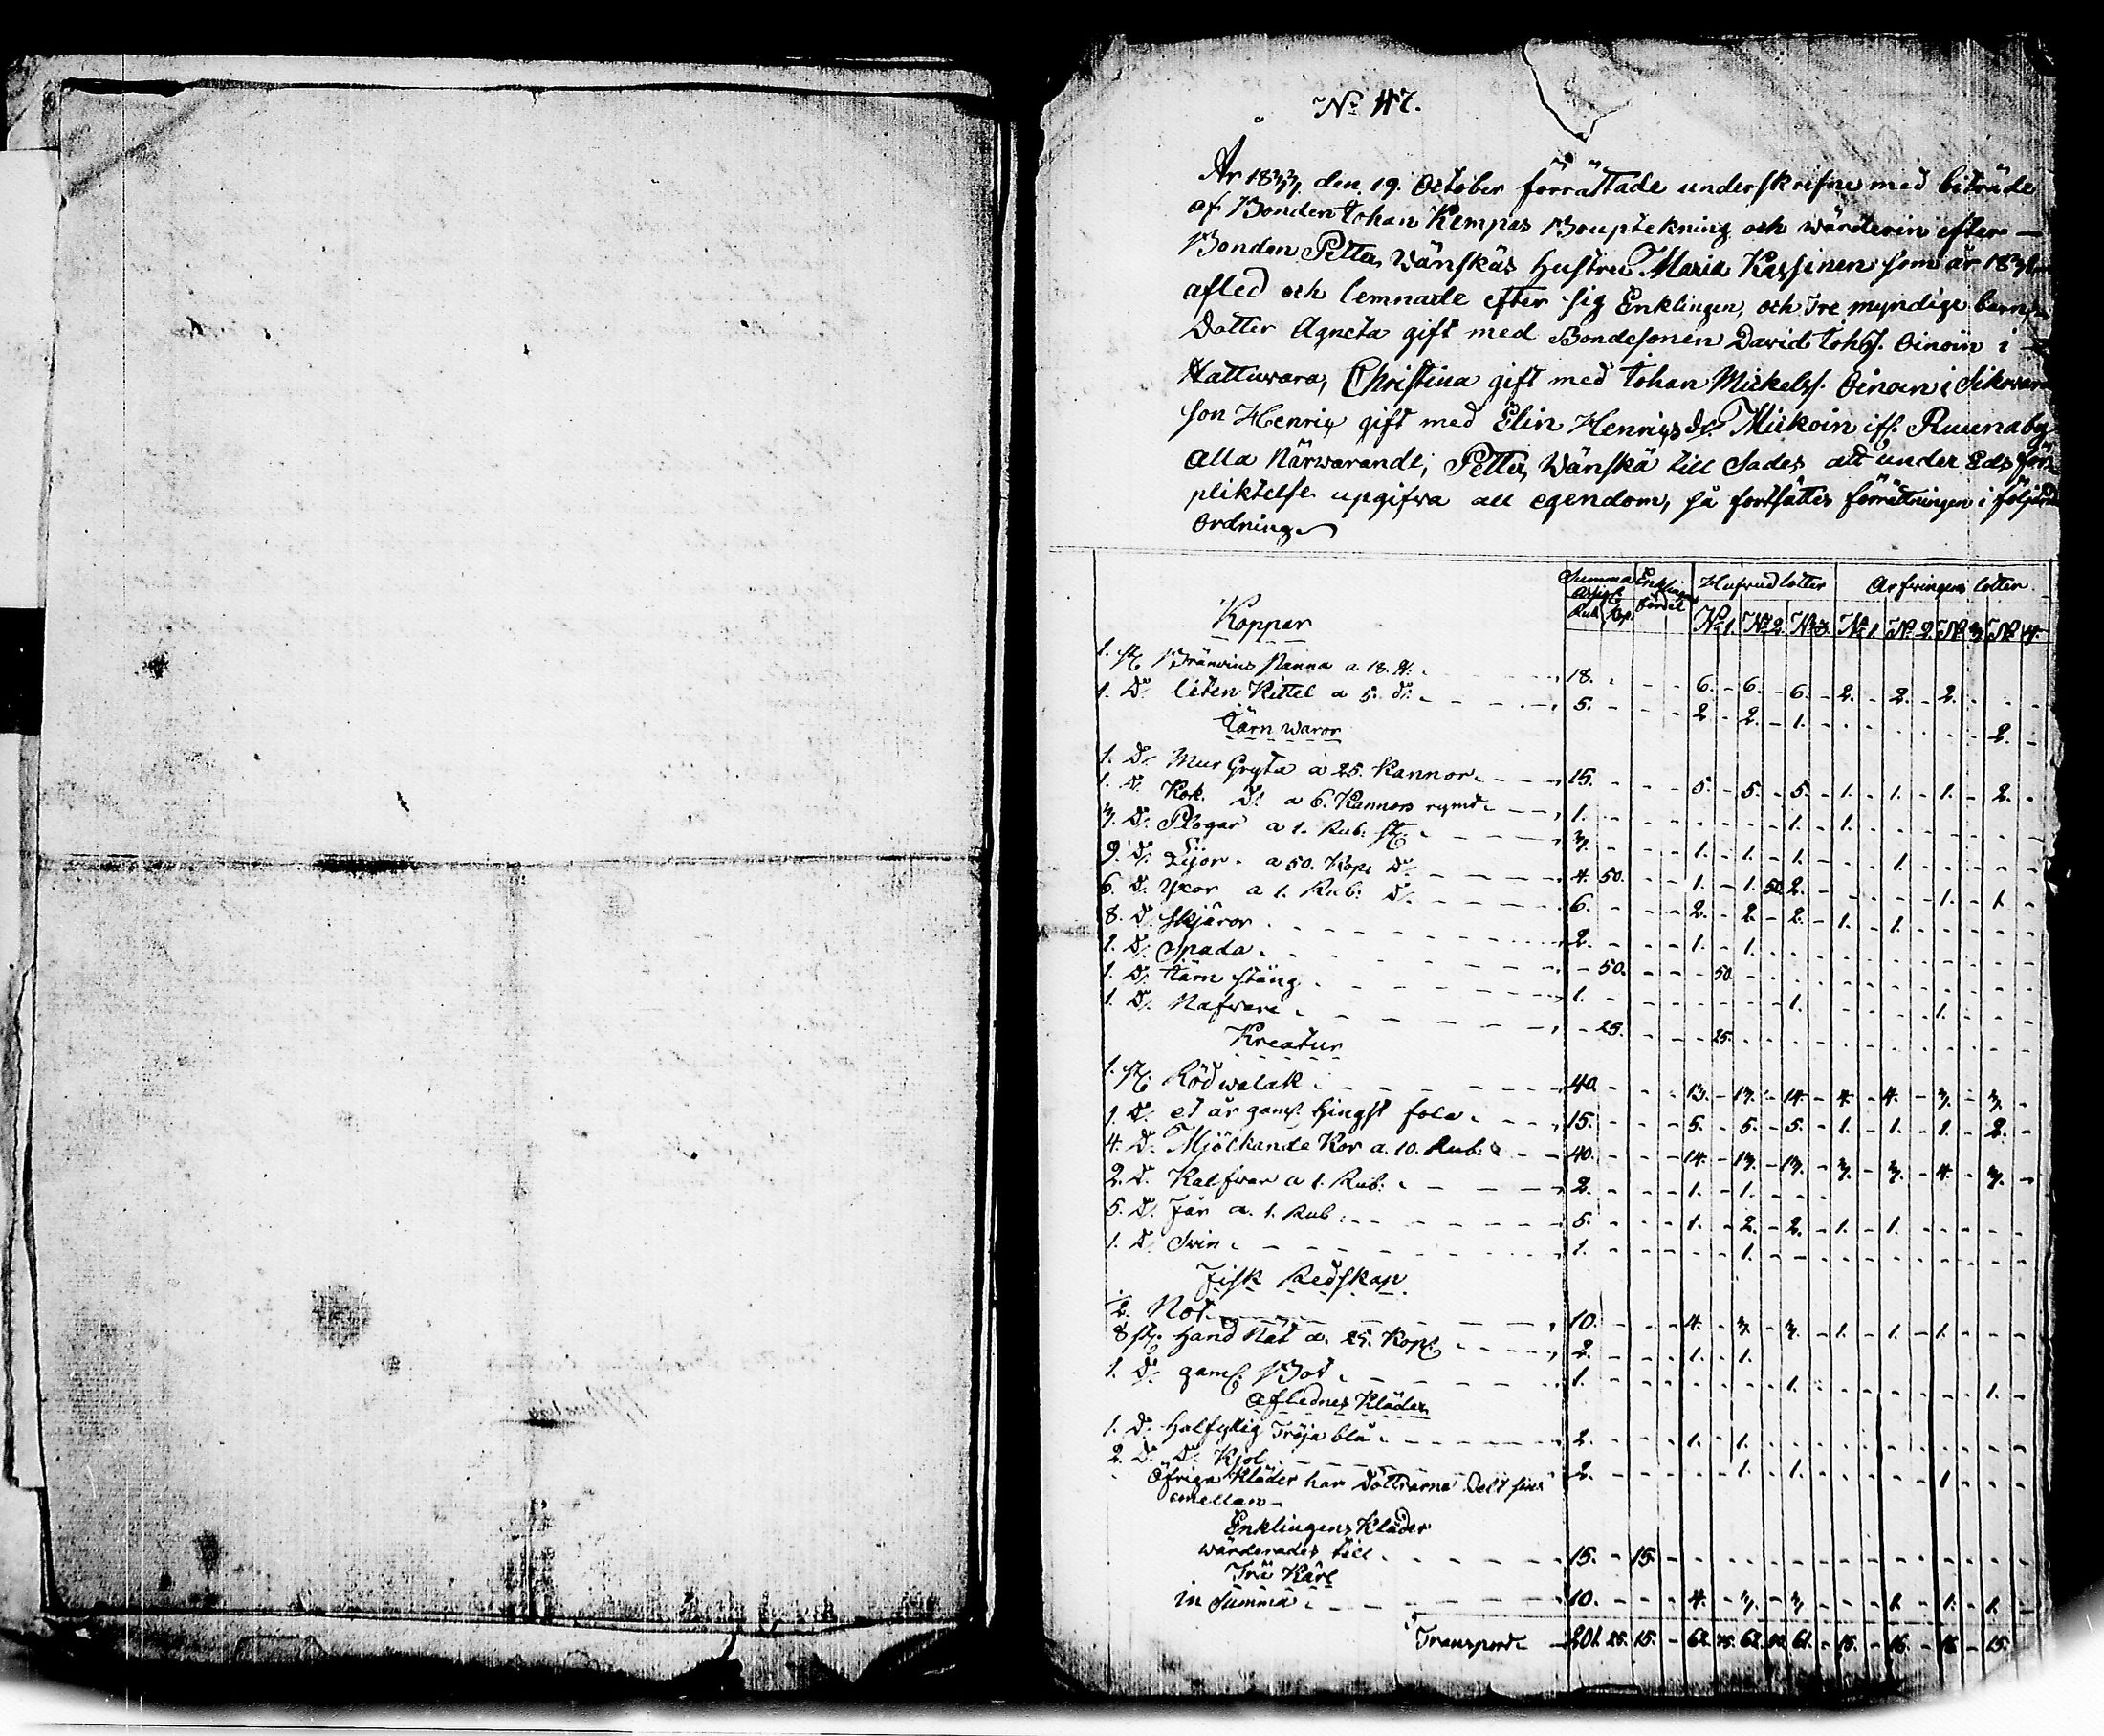 No 47.
År 1833, den, 19. October förrättade underskrifne med biträde
af Bonden Johan Kempas Bouptekning och wärderin efter —
Bonden Petter Wänskäs Hustru Maria Kassinen som år
afled och lemnade efter sig Enklingen, och Tre myndige barn,
Dotter Agneta gift med Bondesonen David Johs. Oinoin i
Hattuwara, Christina gift med Johan Mickelss. Oinoen i
son Henrig gift med Elin Henrigs dr. Mickoin ifr. Ruunaby
alla Närwarande, Petter, Wänskä till Sades att under Eds för
pliktelse upgifwa all egendom, så fortsättes förrättningen i
Ordning
Summa Enklingens Hufwud lotter Arfwingens lotter
Rub. Kop. fördel No 1. No 2. No 3. No 1. No 2. No 3. No 4.
Kopper
1. st. Bränvins Panna a 18. ℔. 18. 6. 6. 6. 2. 2. 2.
1. Do. liten Kittel a 5. do. 5. 2. 2. 1. 2.
Järn waror
1. Do. Mur Gryta a 25. Kannor. 15. 5. 5. 5. 1. 1. 1. 2.
1. Do. Kok. Do. a 6. Kannors rymd. 1. 1. 1.
3. Do. Plogar a 1. Rub. st. 3. 1. 1. 1. 1.
9. Do. Lijor. a 50. Kop. Do. 4. 50. 1. 1. 50. 2. 1. 1.
6. Do. Yxor a 1. Rub. Do. 6. 2. 2. 2. 1. 1.
8. Do. Skjäror 2. 1. 1.
1. Do. Spada. 50. 50.
1. Do. Järn stång. 1. 1. 1.
1. Do. Nafware. 25. 25.
Kreatur
1. st. Röd walak 40. 13. 13. 14. 4. 4. 3. 3.
1. Do. et år gamt. Hingst fola. 15. 5. 5. 5. 1. 1. 1. 2.
4. Do. Mjölkande Kor a. 10. Rub. 40. 14. 13. 13. 3. 3. 4. 3.
2. Do. Kalfwar a 1. Rub. 2. 1. 1.
5. Do. Får a. 1. Rub. 5. 1. 2. 2. 1. 1.
1. Do. Svin. 1. 1.
Fisk Redskap
1/2. Not. 10. 4. 3. 3. 1. 1. 1.
8 st. Hand Nät a. 25. Kop. 2. 1. 1.
1. Do. gaml. Bot. 1. 1. 1.
Aflednes Kläder
1. Do. Halfyllig Tröja blå. 2. 1. 1.
2. Do. Do. Kjol. 2. 1. 1. 1.
Öfriga Kläder har Döttrarna Delt sins
emellan —
Enklingens Kläder
wärderades till. 15. 15.
Trä Kärl
in Summa. 10. 4. 3. 3. 1. 1. 1.
Transport 201. 25. 15. 62. 75. 62. 50. 61. 15. 16. 15.